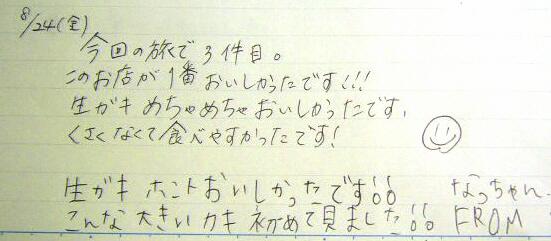 8/24(金)
今回の旅で3件目。
このお店が1番おいしかったです!!!
生ガキめちゃめちゃおいしかったです。
くさくなくて食べやすかったです!
生ガキ ホントおいしかったです!! なっちゃん
こんな大きいカキ初めて見ました!! FROM